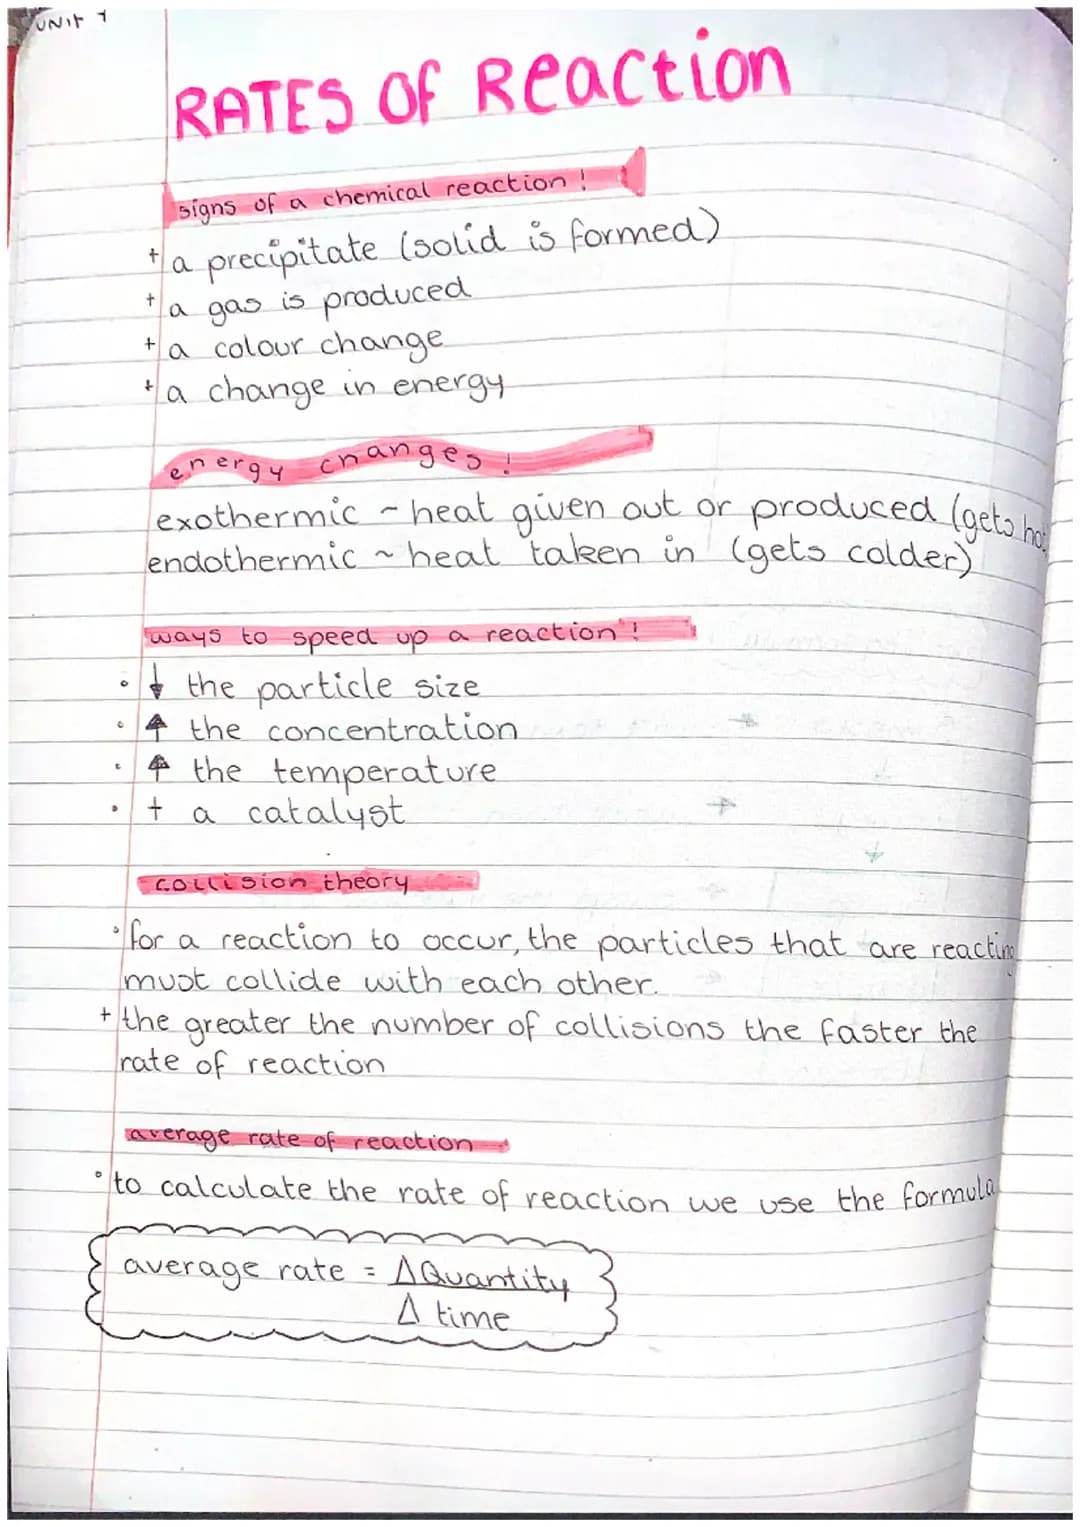 UNIT 1
RATES OF Reaction
signs of a chemical reaction !
+ a precipitate (solid is formed)
+ a gas is produced
+ a colour change
+ a change in energy
energy changes !
exothermic ~ heat given out or produced (gets hot
endothermic ~ heat taken in (gets colder)
ways to speed up a reaction !
• ↓ the particle size
• ↑ the concentration
• ↑ the temperature
• + a catalyst
collision theory
• for a reaction to occur, the particles that are reacting
must collide with each other.
+ the greater the number of collisions the faster the
rate of reaction
average rate of reaction
• to calculate the rate of reaction we use the formula
average rate = ΔQuantity
Δ time